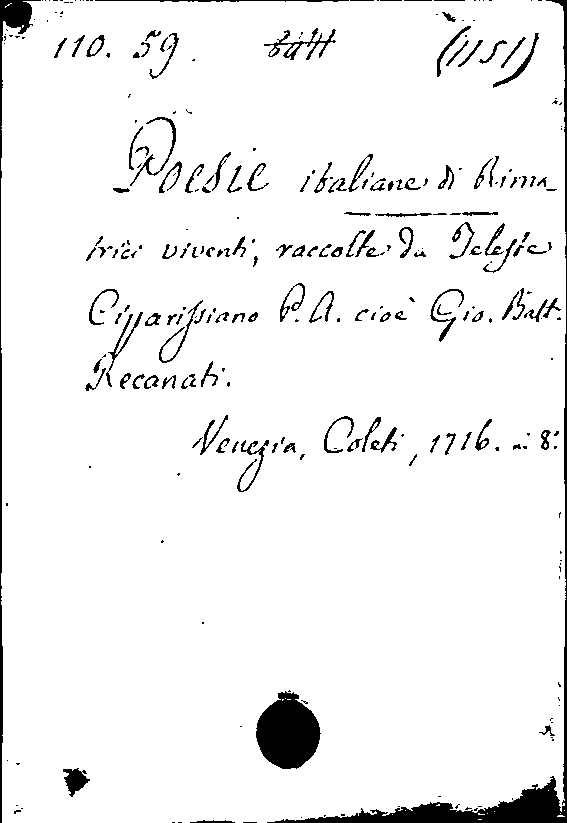 110. 59. (1151)
Poesie italiane di Rima
trici viventi, raccolte da Teleste
Ciparissiano P. A. cioè Gio. Batt.
Recanati.
Venezia, Coleti, 1716. in 8.°